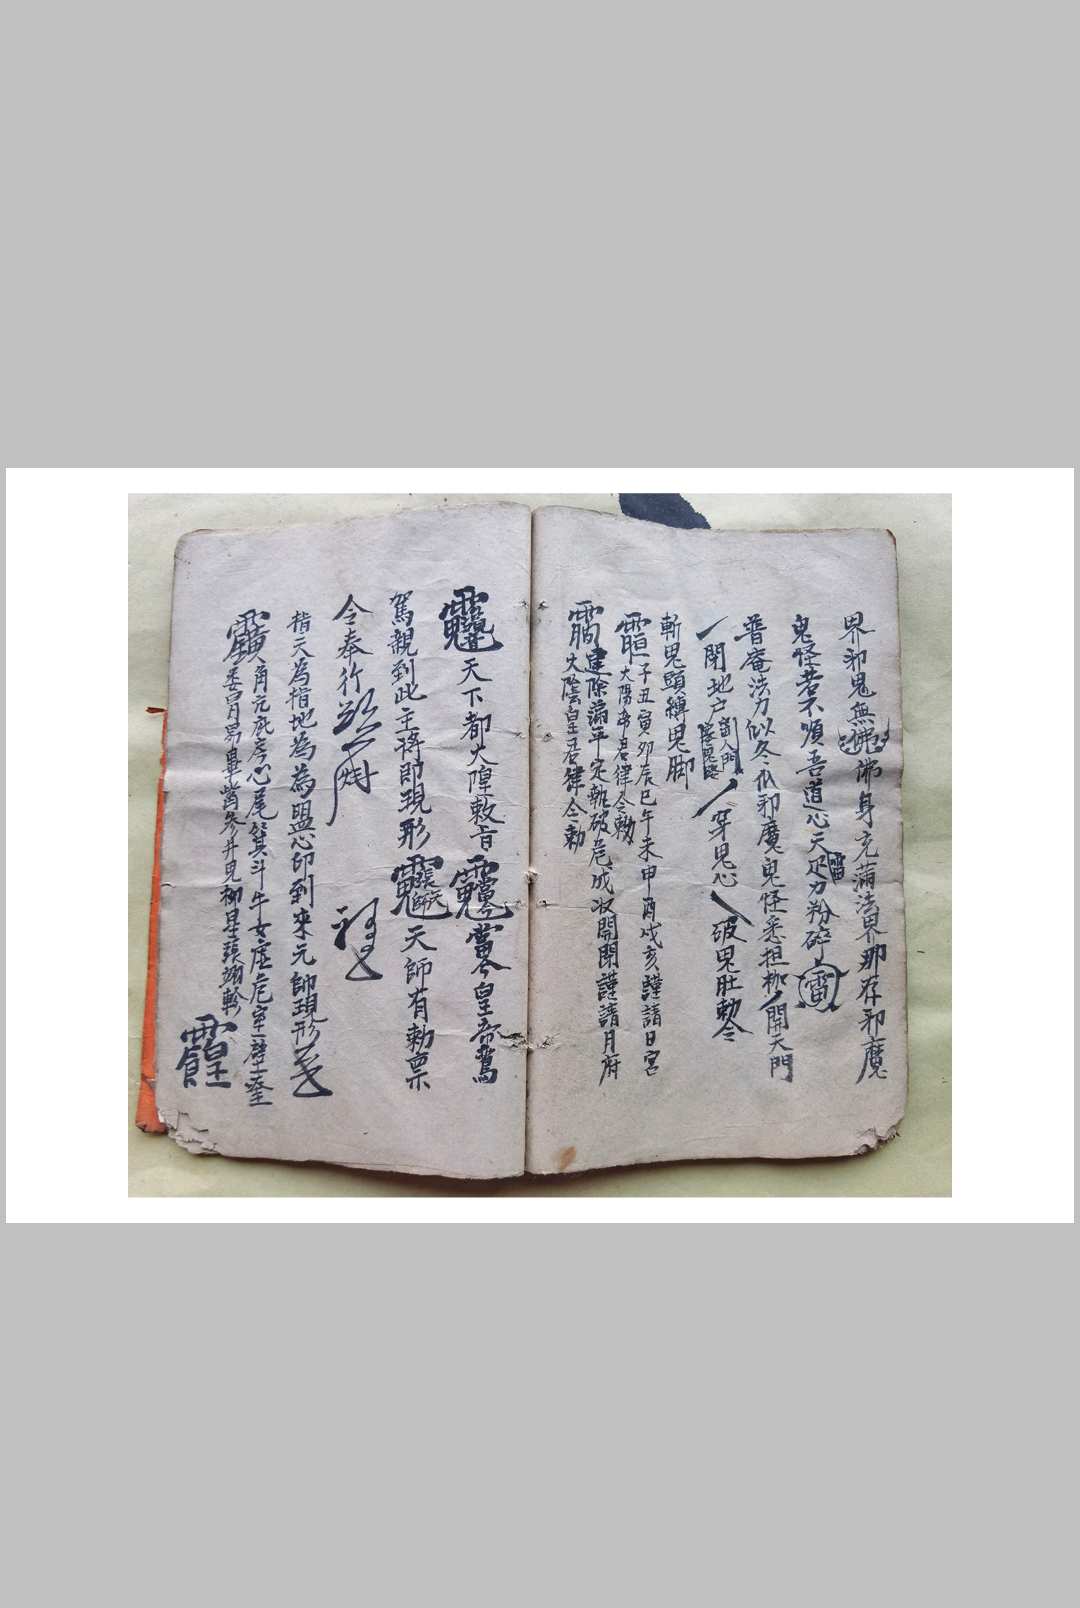 界邪鬼無佛身充滿法界那存邪魔
鬼怪若不順吾道心天雷力粉碎雷
普庵法力似冬瓜邪魔鬼怪悉担枷開天門
閉地户留人門塞鬼路穿鬼心破鬼肚勅令
斬鬼頭縛鬼脚
子丑寅卯辰巳午未申酉戌亥謹請日宮
太陽帝君律令勅
建除滿平定執破危成收開閉謹請月府
太陰皇君律令勅
天下都大隍敕旨當今皇帝駕
駕親到此主將即現形天師有勅禀
令奉行
指天為指地為為盟心印到來元帥現形
角亢氐房心尾箕斗牛女虛危室壁奎
婁胃昴畢觜參井鬼柳星張翊軫